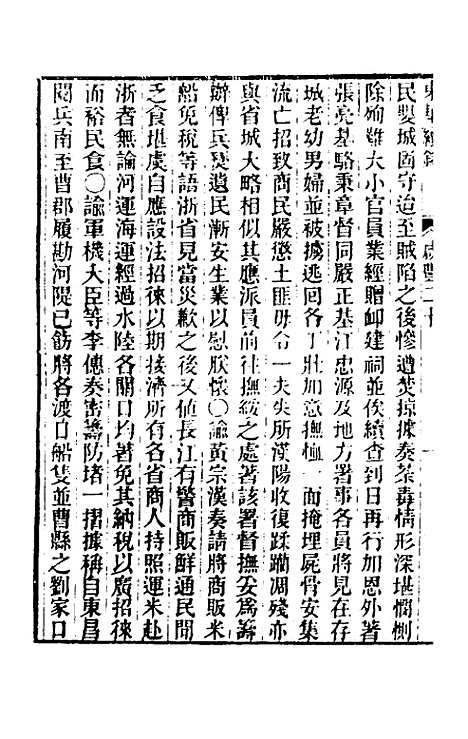 東華續錄
咸豐二十
民嬰城固守迨至賊陷之後慘遭焚掠據奏荼毒情形深堪憫惻
除殉難大小官員業經贈卹建祠並俟續查到日再行加恩外著
張亮基駱秉章督同嚴正基江忠源及地方署事各員將見在存
城老幼男婦並被擄逃回各丁壯加意撫䘏一面掩埋屍骨安集
流亡招致商民嚴懲土匪毋令一夫失所漢陽收復蹂躪凋殘亦
與省城大略相似其應派員前往撫綏之處著該署督撫妥為籌
辦俾兵燹遺民漸安生業以慰朕懷〇諭黃宗漢奏請將商販米
船免稅等語浙省見當災歉之後又值長江有警商販鮮通民間
乏食堪虞自應設法招徠以期接濟所有各省商人持照運米赴
浙者無論河運海運經過水陸各關口均著免其納稅以廣招徠
而裕民食〇諭軍機大臣等李僡奏密籌防堵一摺據稱自東昌
閱兵南至曹郡履勘河隄已飭將各渡口船隻並曹縣之劉家口